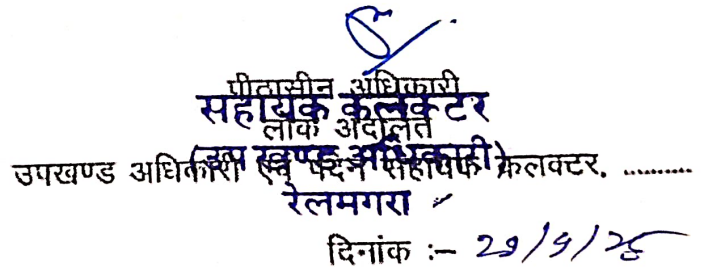 पीठासीन अधिकारी
सहायक कलक्टर
लोक अदालत
(उप खण्ड अधिकारी)
उपखण्ड अधिकारी एवं पदेन सहायक कलक्टर, ..........
रेलमगरा
दिनांक :-